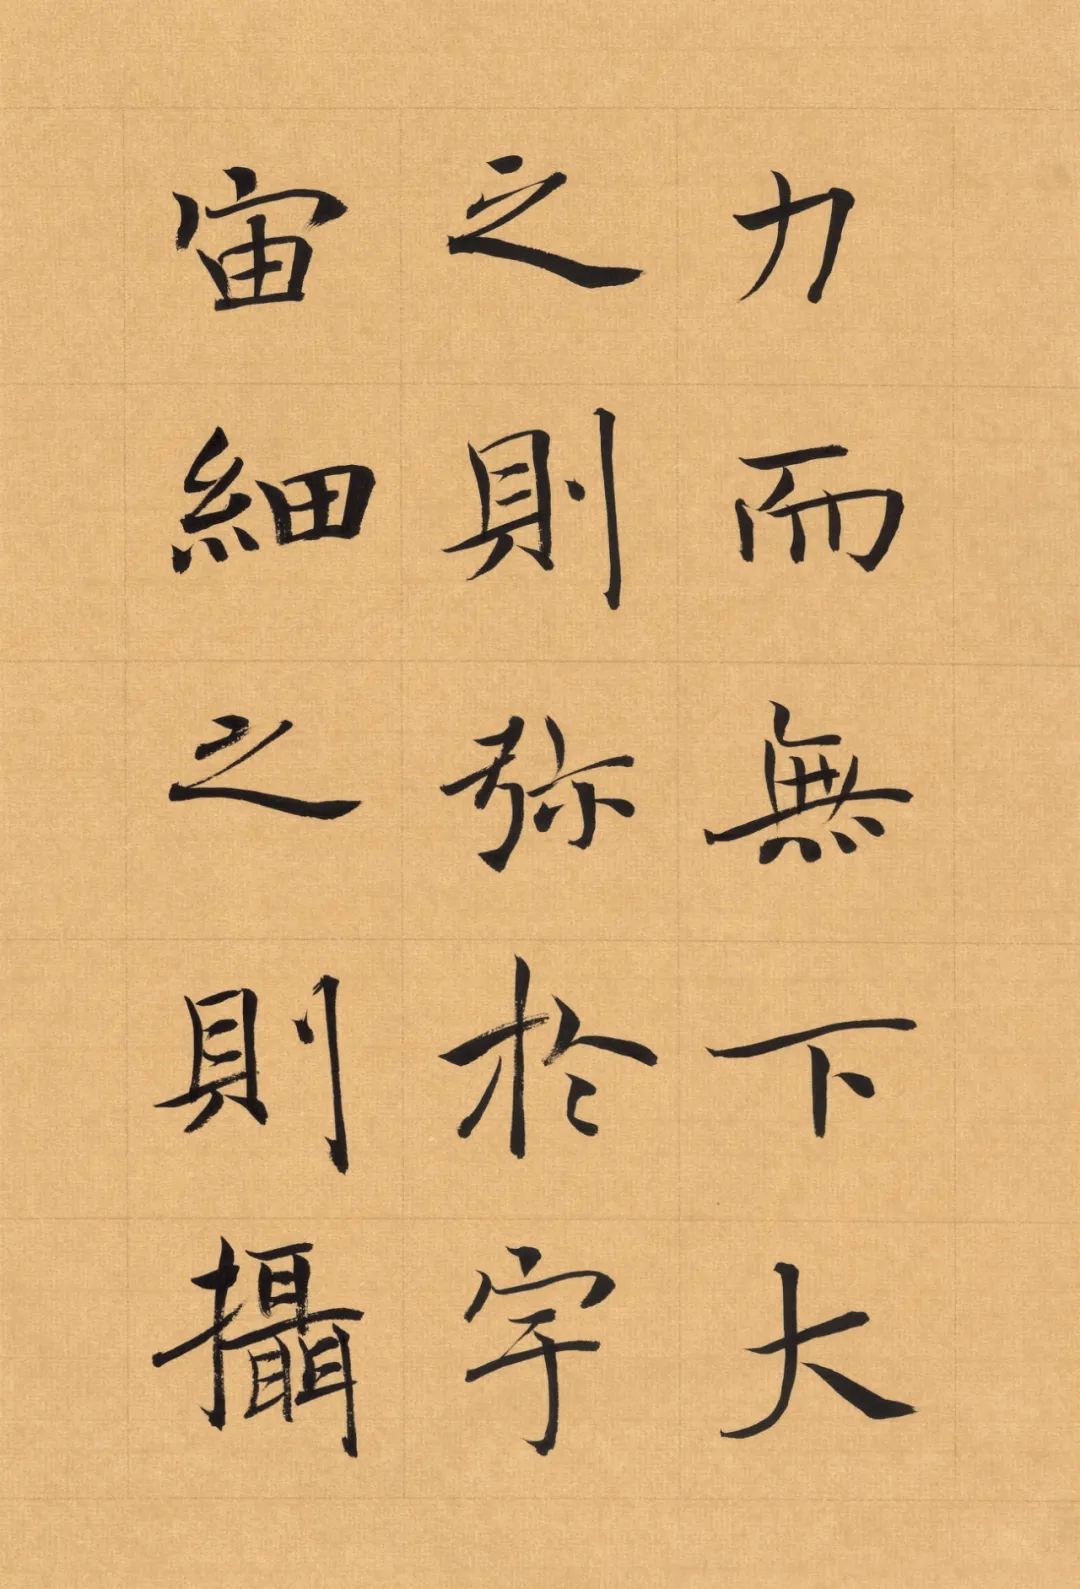 力而無下大
之則弥於宇
宙細之則攝